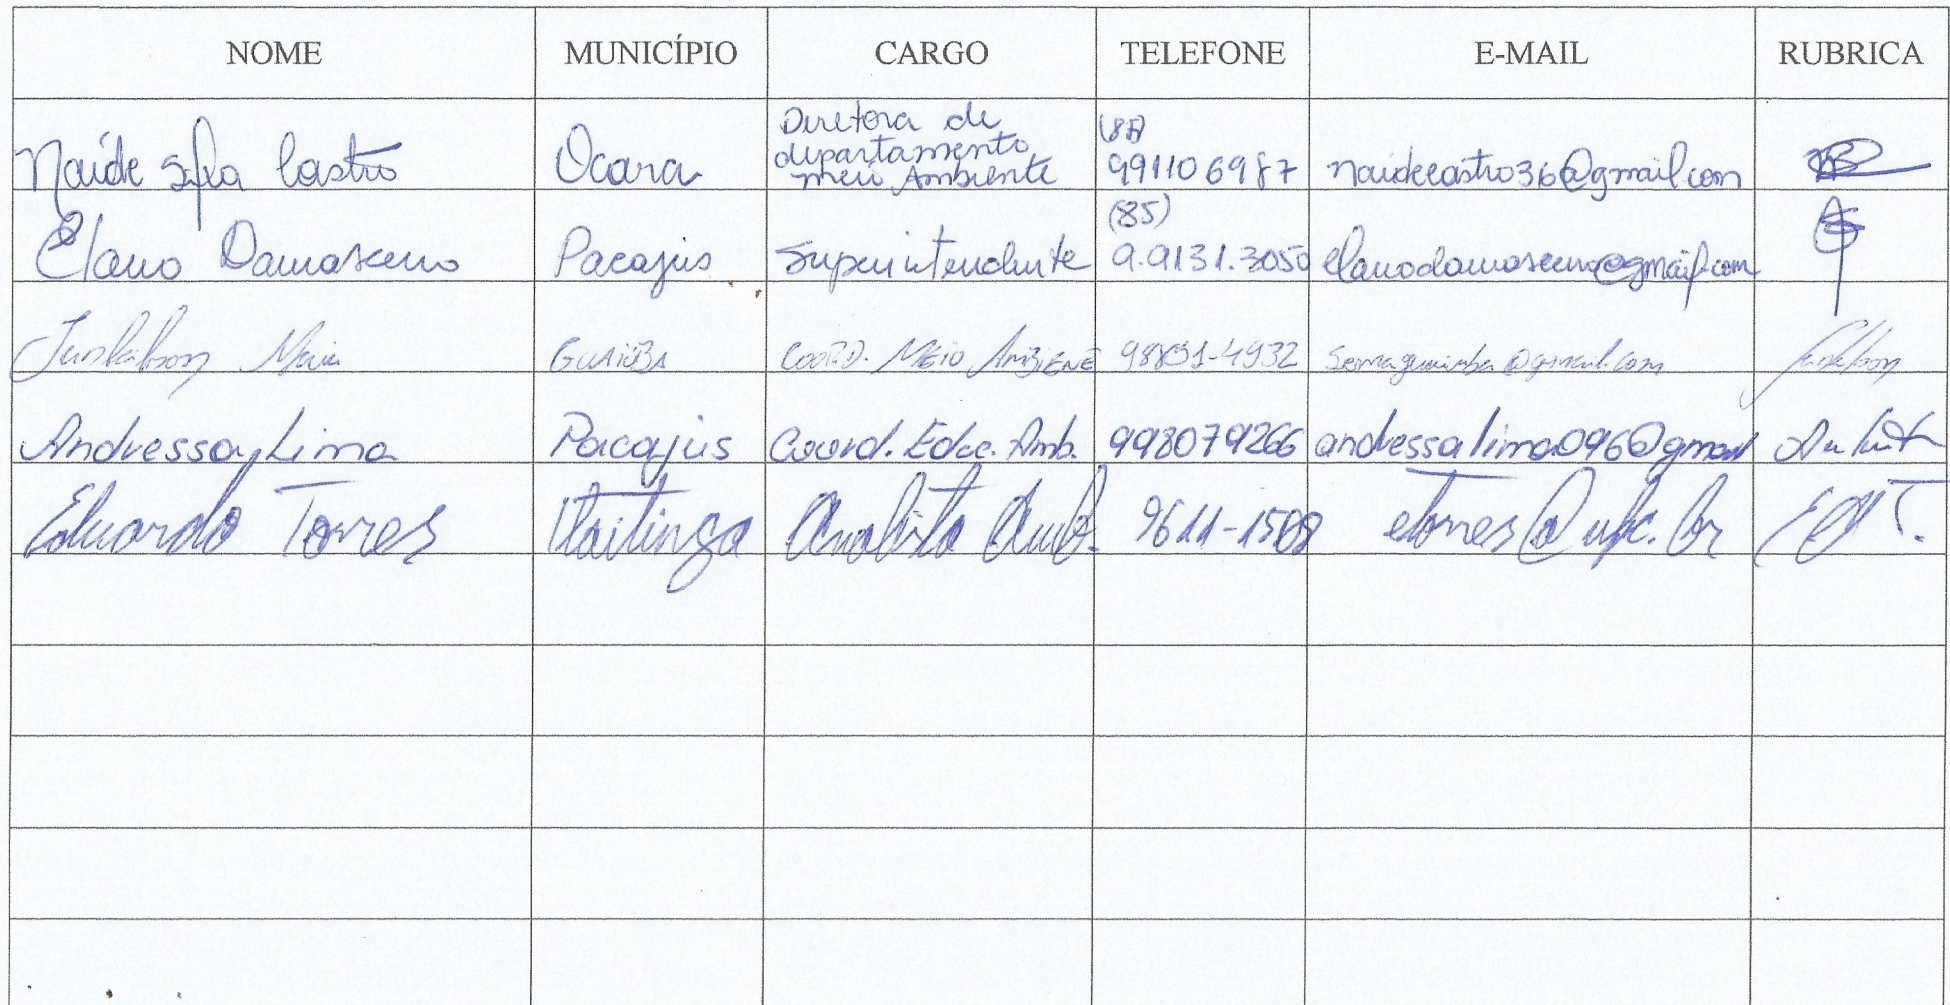 NOME MUNICÍPIO CARGO TELEFONE E-MAIL RUBRICA
Naíde Silva Castro Ocara Diretora de departamento meio Ambiente (85) 991106987 naidecastro36@gmail.com
Elano Damasceno Pacajus Superintendente (85) 9.9131.3050 elanodamasceno@gmail.com
Maia GUAIÚBA COORD. MEIO AMBIENE 4932 semaguaiuba@gmail.com
Andressa Lima Pacajus Coord. Educ. Amb. 998079266 andressalima096@gmail
Eduardo Torres Itaitinga Analista Amb. 9611-1508 etorres@ufc.br